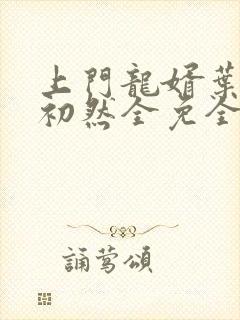 上門龍婿葉
初然全免全
誦鶯頌